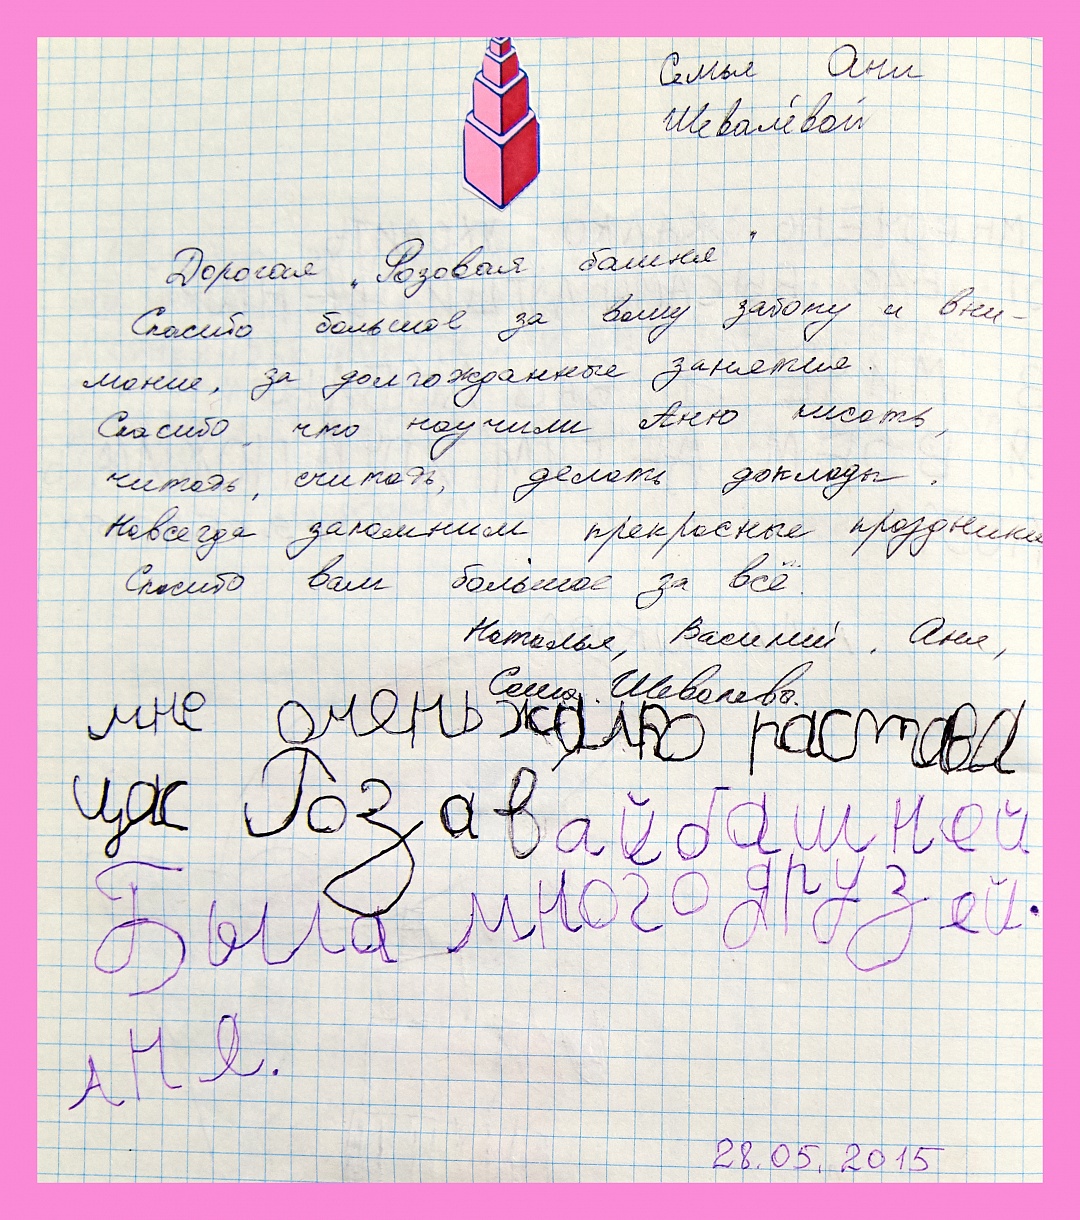 Семья Ани
Шевалёвой
Дорогая „Розовая башня"
Спасибо большое за вашу заботу и вни-
мание, за долгожданные занятия.
Спасибо, что научили Аню писать,
читать, считать, делать доклады.
Навсегда запомним прекрасные праздники
Спасибо вам большое за всё.
Наталья, Василий, Аня,
Саша Шевалевы.
мне очень жалко растова
цас Розавай башней
Была много друзей.
Аня.
28.05.2015